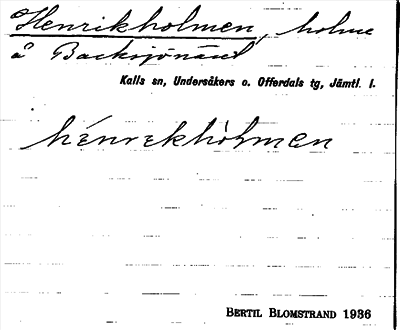 Henrikholmen, holme
å Backsjönäset
Kalls sn, Undersåkers o. Offerdals tg, Jämtl. l.
hénrekhòlmen
BERTIL BLOMSTRAND 1936